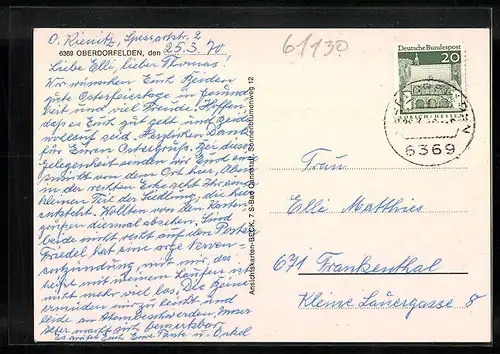 O. Kienitz, Spessartstr. 2
6369 OBERDORFELDEN, den 25.3.70
Liebe Elli, lieber Thomas!
Wir wünschen Euch beiden
gute Osterfeiertage in Gesund
heit und viel Freude. Hoffen,
daß es Euch gut geht und seid
wohlauf seid. Herzlichen Dank
für Euren Ostergruß. Bei dieser
Gelegenheit senden wir Euch an
sicht von dem Ort hier, Oben
in der rechten Ecke seht Ihr ein
kleinen Teil der Siedlung, die hier
entsteht. Wollten von den Karten
grüßen diesmal absehen. Sind
beide nicht recht auf den Posten
Friedel hat eine arge Nerven-
entzündung, mit mir, das
heißt mit meinem Laufen ist
nicht mehr viel los. Die Beine
ermüden mir zu leicht und
leide an Atembeschwerden, unser
Alter macht sich bemerkbar.
Es grüßt Euch Eure Tante u. Onkel
Ansichtskarten-BECK, 7 S-Bad Cannstatt, Sonnenblumenweg 12
61130
Deutsche Bundespost
20
6369
Frau
Elli Matthies
671 Frankenthal
Kleine Lauergasse 8